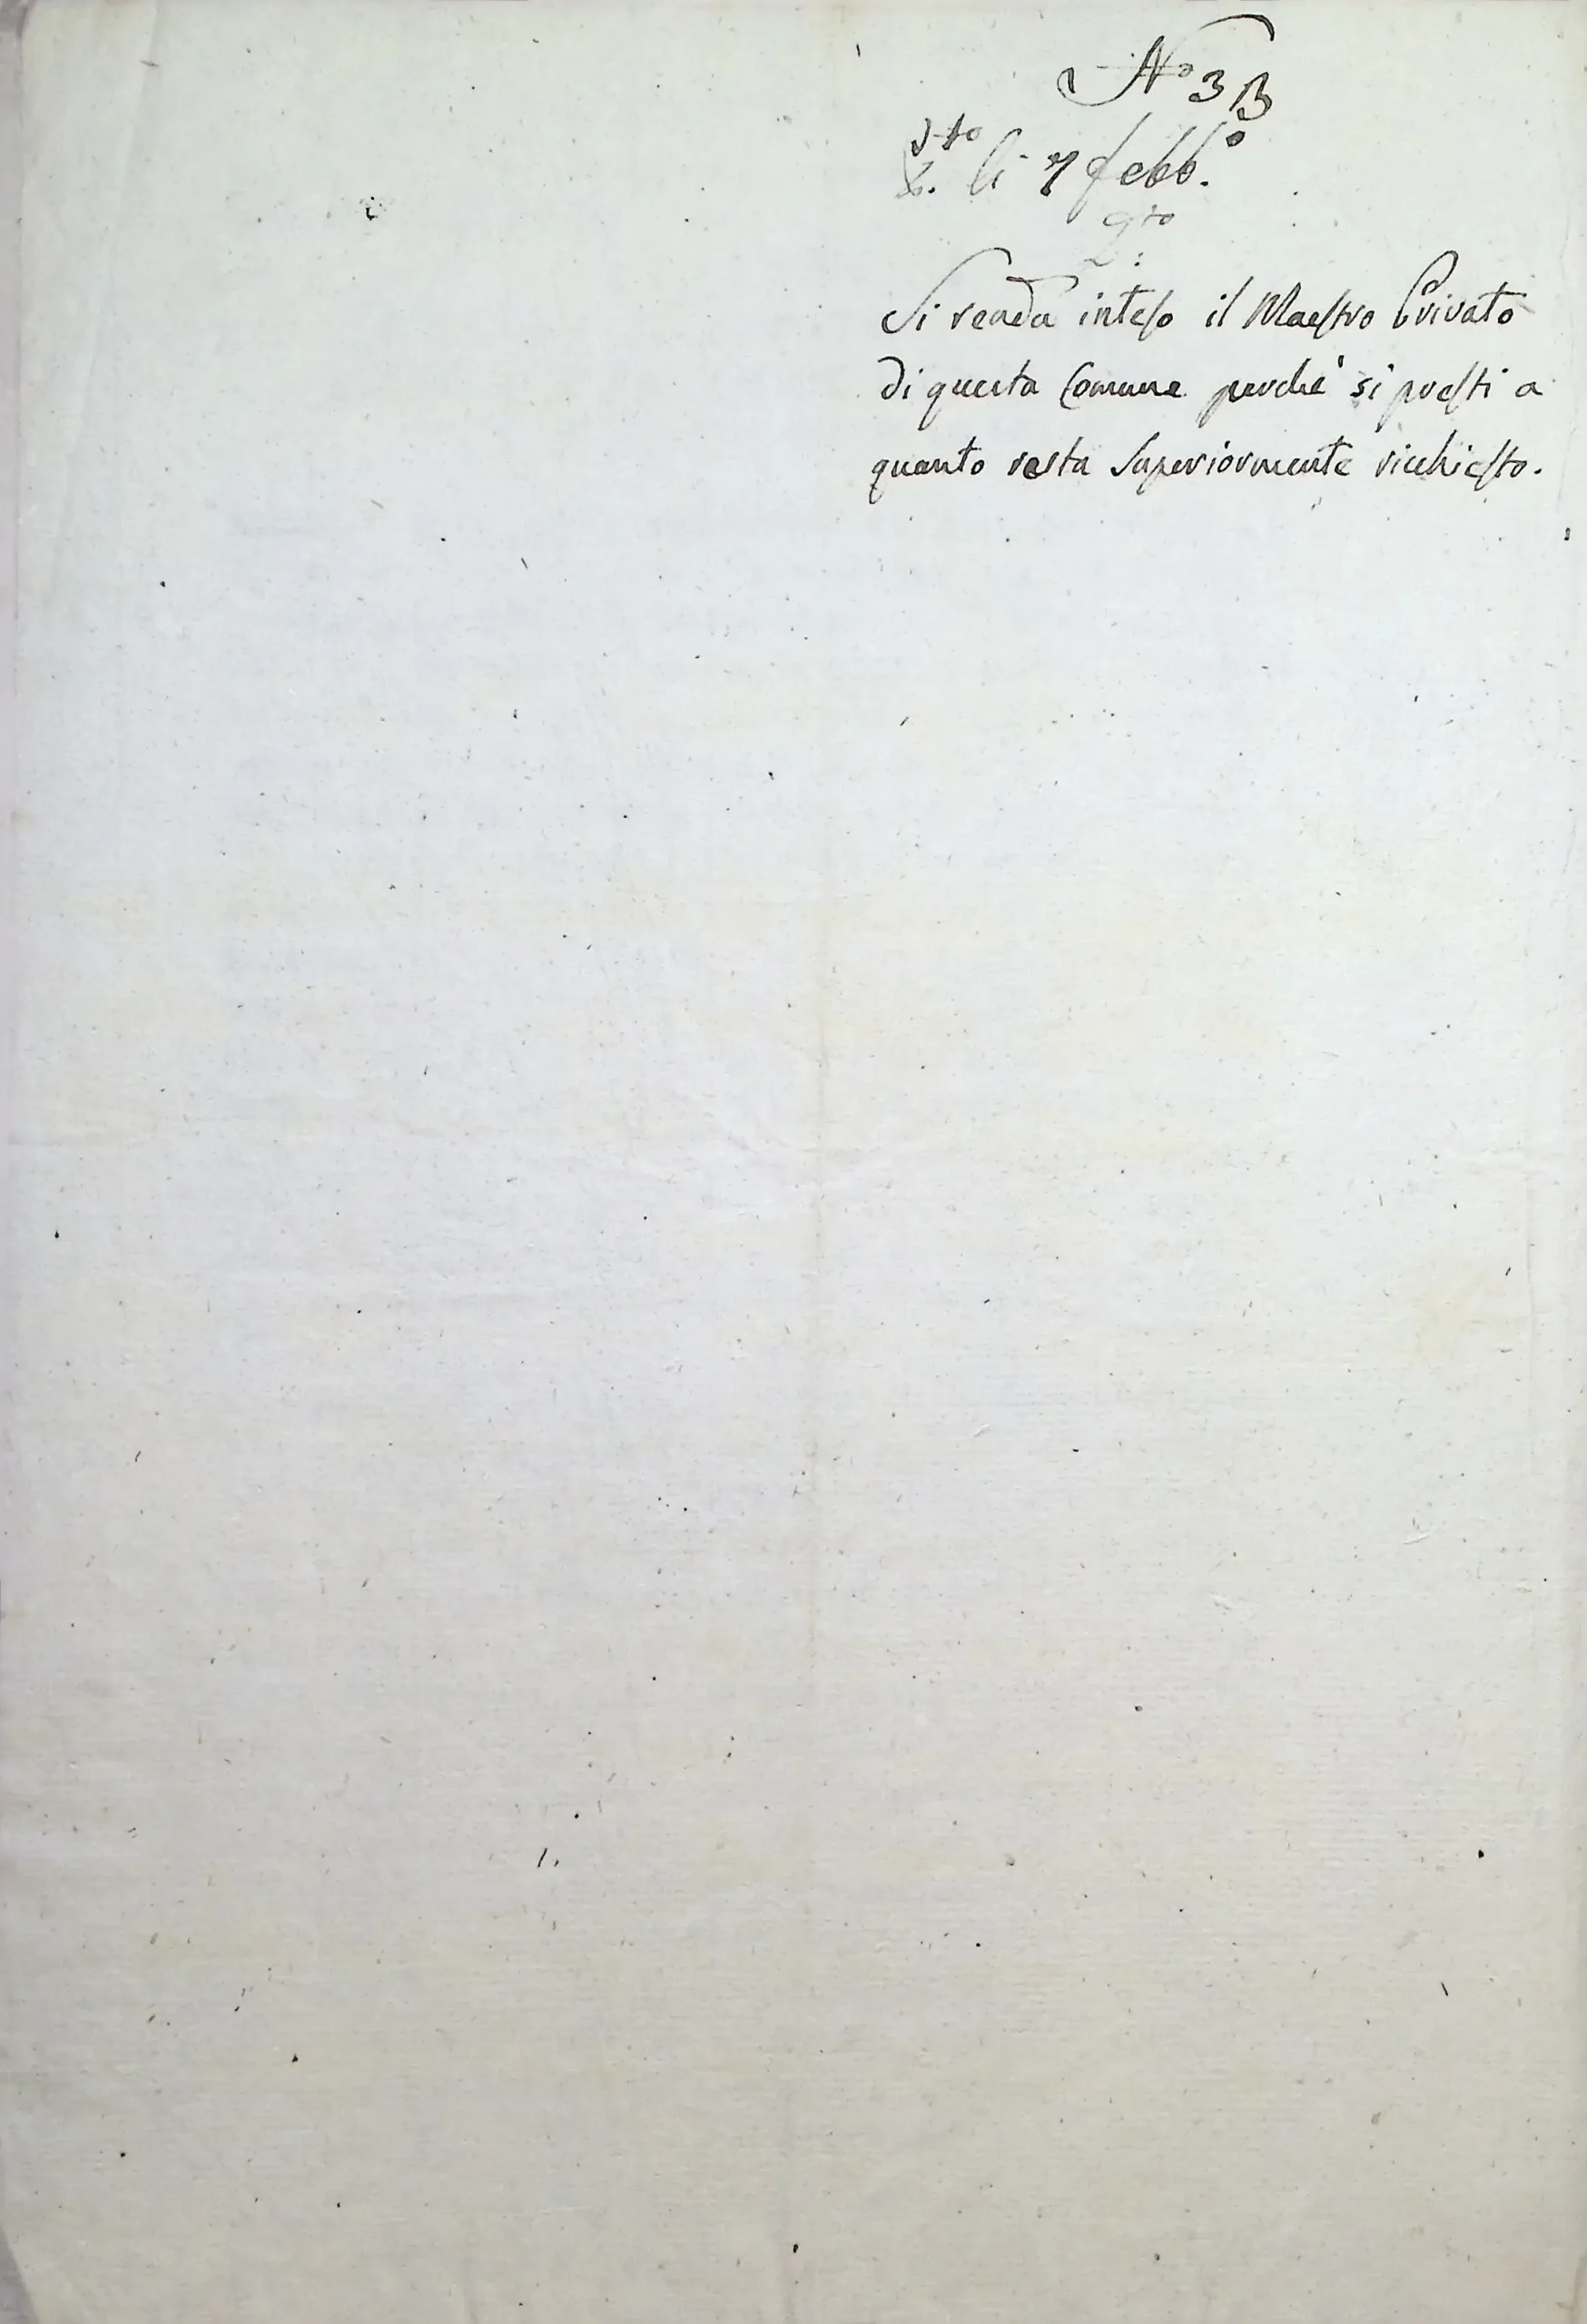 N.º 3 B
li 7 febb.º
Si renda inteso il Maestro Privato
di questa Comune perchè si presti a
quanto resta Superiormente ricchiesto.